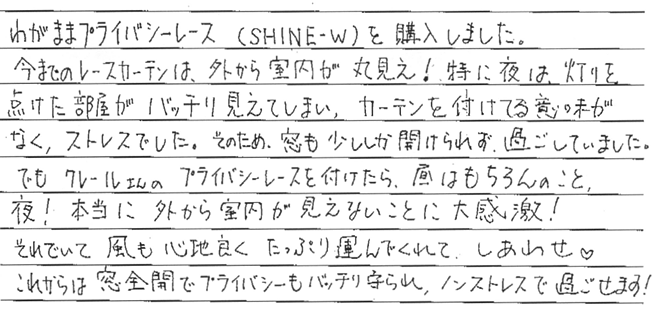 わがままプライバシーレース (SHINE-W)を購入しました。
今までのレースカーテンは、外から室内が丸見え!特に夜は、灯りを
点けた部屋がバッチリ見えてしまい、カーテンを付けてる意味が
なく、ストレスでした。そのため、窓も少ししか開けられず、過ごしていました。
でもクレールさんのプライバシーレースを付けたら、昼はもちろんのこと、
夜!本当に外から室内が見えないことに大感激!
それでいて風も心地良くたっぷり運んでくれて、しあわせ♡
これからは窓全開でプライバシーもバッチリ守られ、ノンストレスで過ごせます!